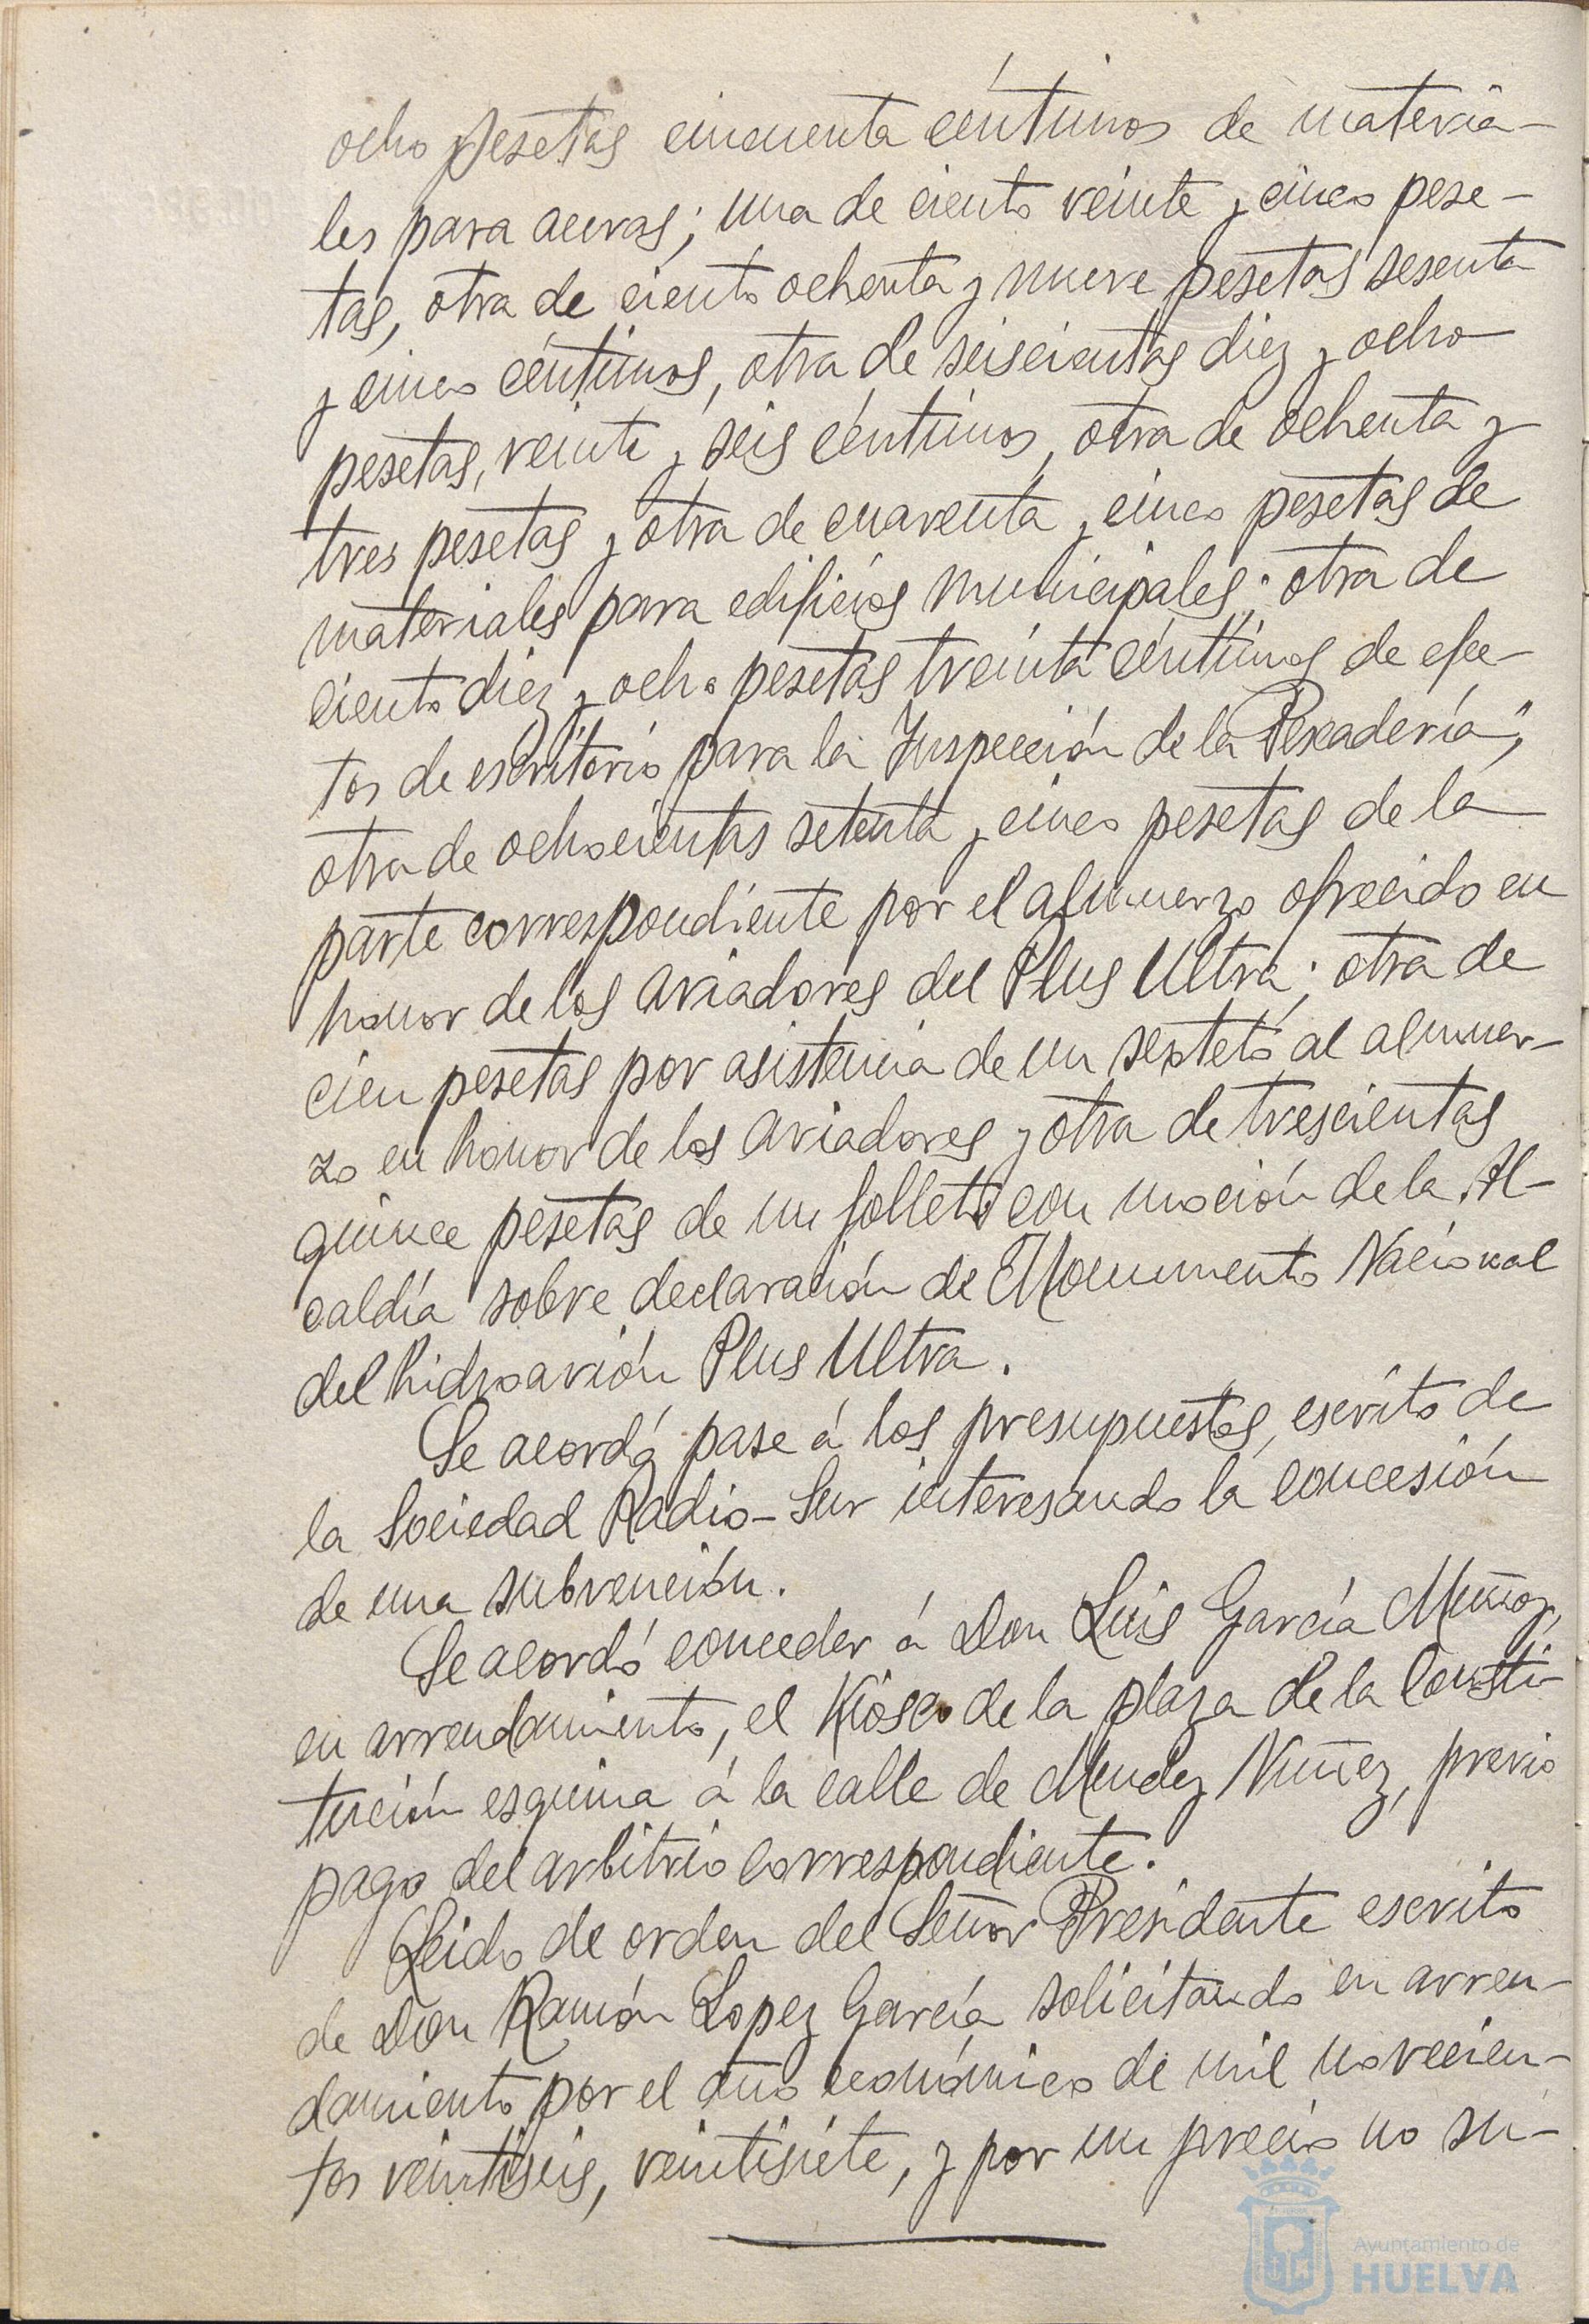 ocho pesetas cincuenta céntimos de materia-
les para aceras; una de ciento veinte y cinco pese-
tas, otra de ciento ochenta y nueve pesetas sesenta
y cinco céntimos, otra de seiscientas diez y ocho
pesetas, veinte y seis céntimos, otra de ochenta y
tres pesetas y otra de cuarenta y cinco pesetas de
materiales para edificios municipales; otra de
ciento diez y ocho pesetas treinta céntimos de efec-
tos de escritorio para la Inspección de la Pescadería;
otra de ochocientas setenta y cinco pesetas de la
parte correspondiente por el almuerzo ofrecido en
honor de los aviadores del Plus Ultra; otra de
cien pesetas por asistencia de un sexteto al almuer-
zo en honor de los aviadores y otra de trescientas
quince pesetas de un folleto con moción de la Al-
caldía sobre declaración de Monumento Nacional
del hidroavión Plus Ultra.
Se acordó pase á los presupuestos, escrito de
la Sociedad Radio-Sur interesando la concesión
de una subvención.
Se acordó conceder á Don Luis García Muñoz,
en arrendamiento, el Kiosco de la plaza de la Consti-
tución esquina á la calle de Mendez Nuñez, previo
pago del arbitrio correspondiente.
Leido de orden del Señor Presidente escrito
de Don Ramón Lopez García solicitando en arren-
damiento por el año económico de mil novecien-
tos veintiseis, veintisiete, y por un precio no su-
Ayuntamiento de
HUELVA